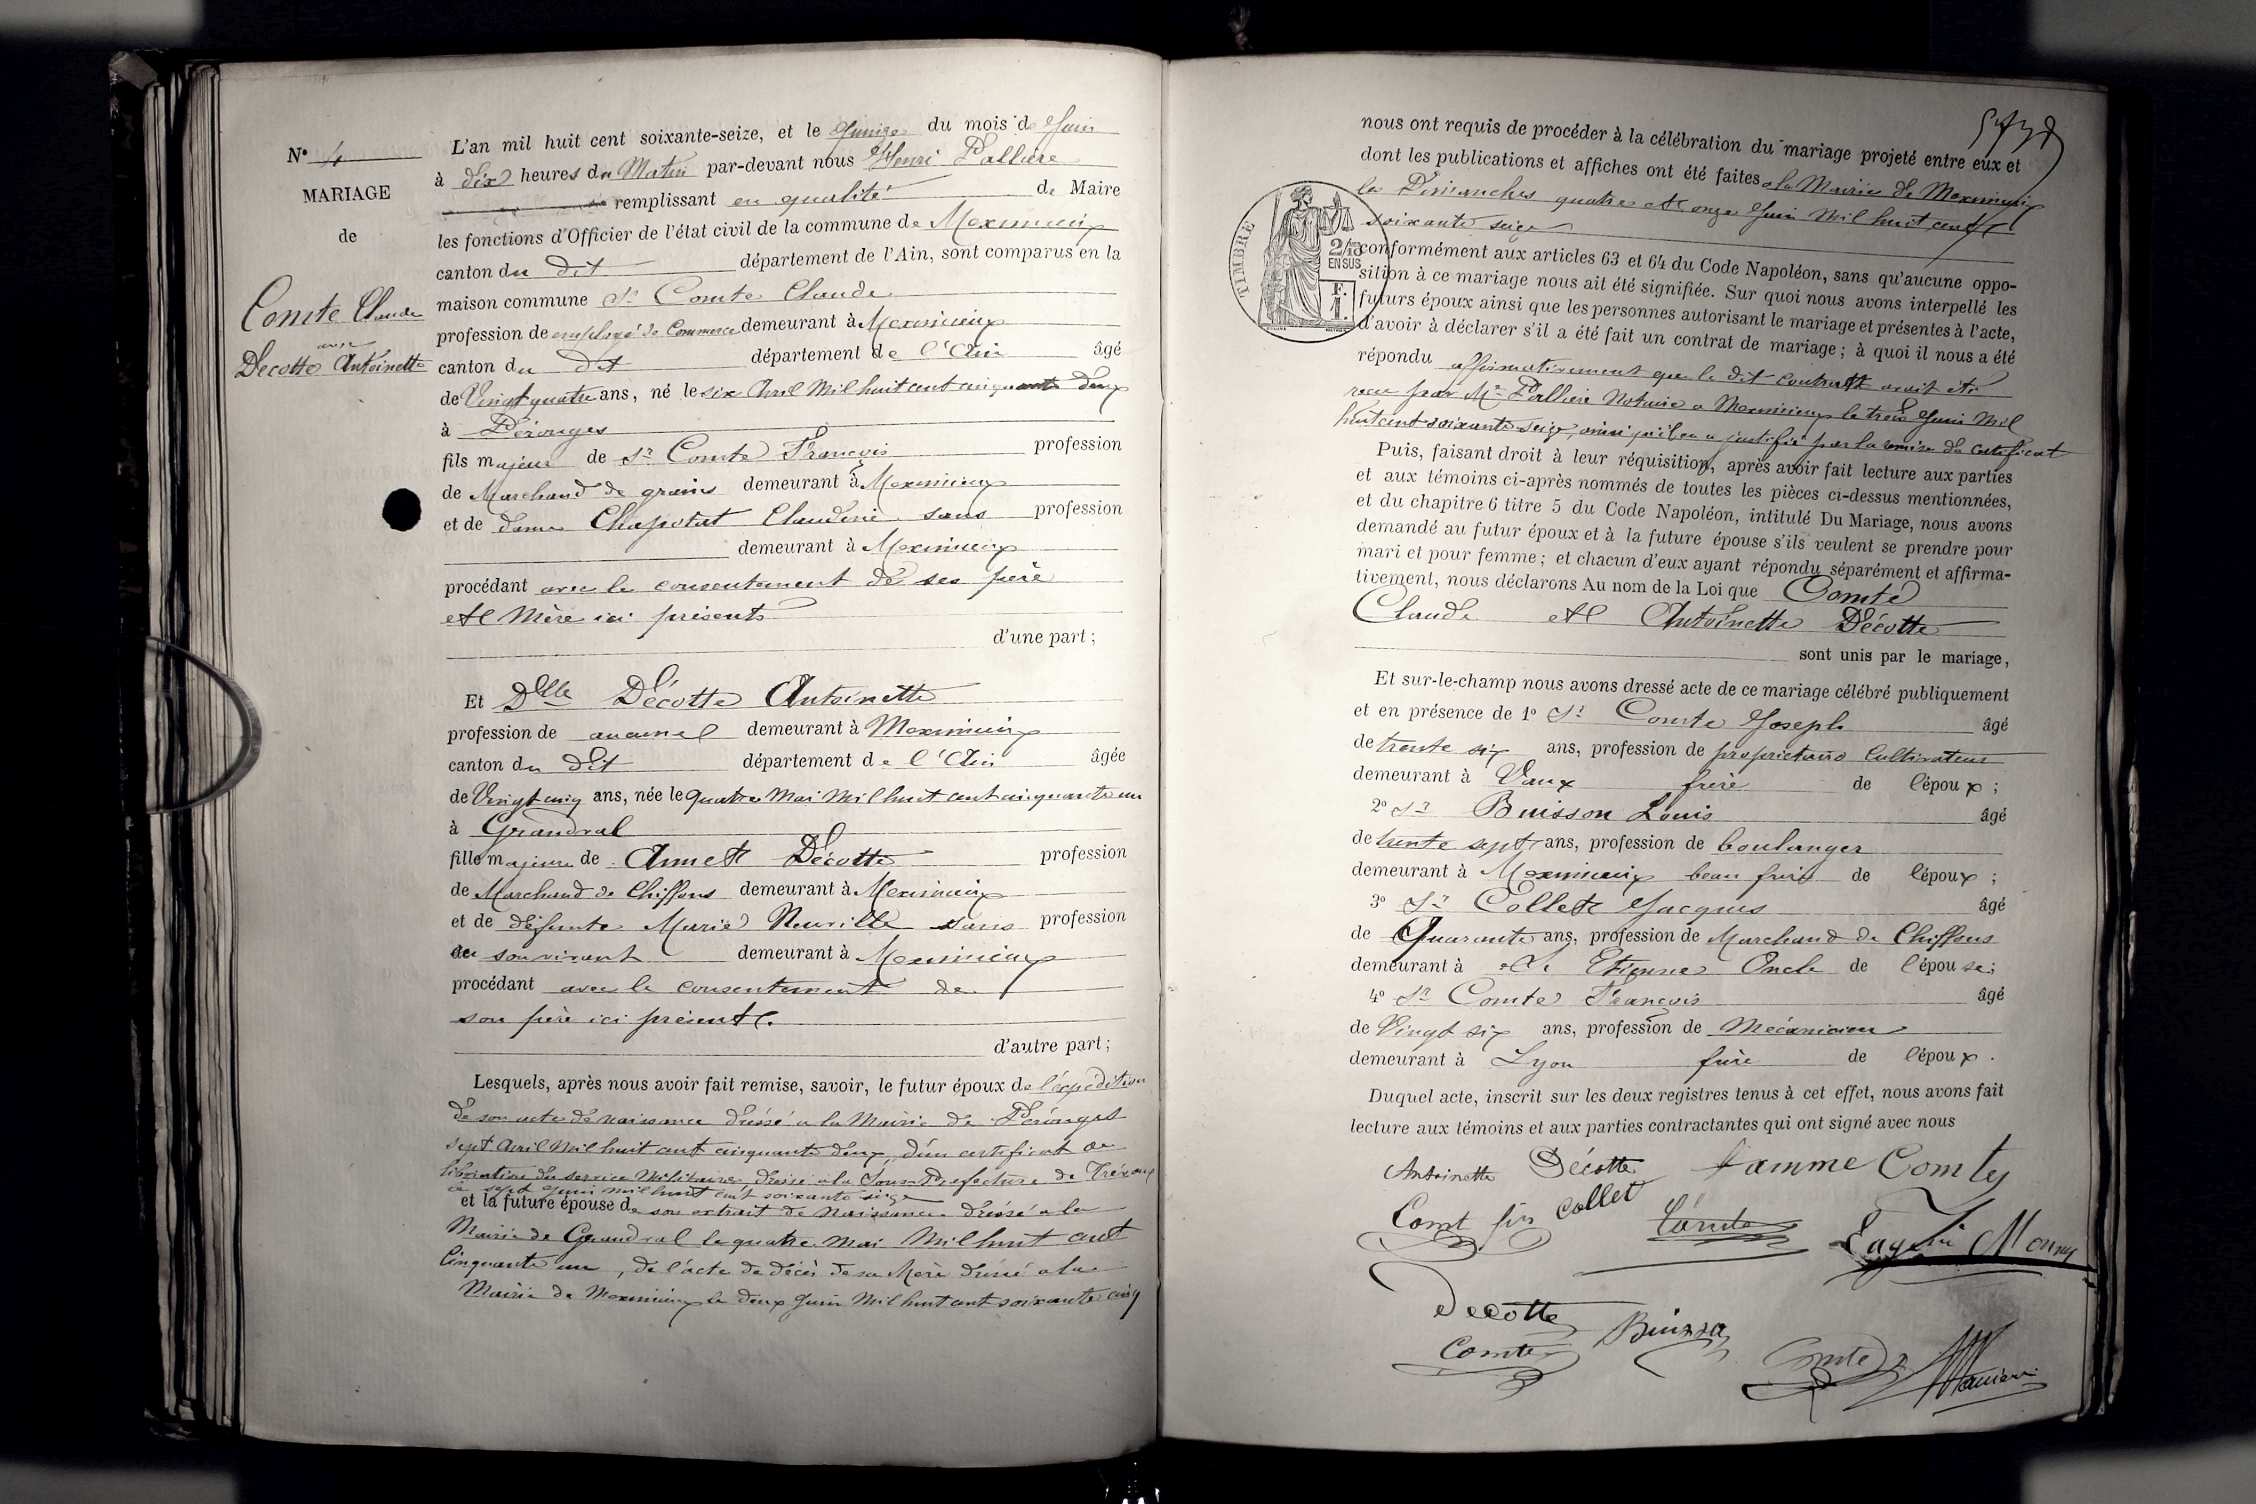 N° 4
MARIAGE
de
Comte Claude
avec
Decotte Antoinette
L'an mil huit cent soixante-seize, et le Quinze du mois de Juin
à dix heures du Matin par-devant nous Henri Pallière
remplissant en qualité de Maire
les fonctions d'Officier de l'état civil de la commune de Meximieux
canton du dit département de l'Ain, sont comparus en la
maison commune Sr Comte Claude
profession de employé de Commerce demeurant à Meximieux
canton du dit département de l'Ain âgé
de Vingt quatre ans, né le six Avril Mil huit cent cinquante deux
à Pérouges
fils majeur de Sr Comte François profession
de Marchand de grains demeurant à Meximieux
et de dame Chapotat Claudine sans profession
demeurant à Meximieux
procédant avec le consentement de ses père
et Mère ici présents
d'une part;
Et Dlle Décotte Antoinette
profession de aucune demeurant à Meximieux
canton du dit département de l'Ain âgée
de Vingt cinq ans, née le quatre Mai Mil huit cent cinquante un
à Grandval
fille majeure de Annet Décotte profession
de Marchand de Chiffons demeurant à Meximieux
et de défunte Marie Neuville sans profession
de son vivant demeurant à Meximieux
procédant avec le consentement de
son père ici présent.
d'autre part;
Lesquels, après nous avoir fait remise, savoir, le futur époux de l'expédition
de son acte de naissance dressé a la Mairie de Pérouges
sept Avril Mil huit cent cinquante deux, d'un certificat de
libération du service Militaire, dressé a la Sous Préfecture de Trévoux
le sept Juin mil huit cent soixante seize
et la future épouse de son extrait de Naissance dressé a la
Mairie de Grandval le quatre Mai Mil huit cent
Cinquante un, de l'acte de décès de sa Mère dressé a la
Mairie de Meximieux le deux Juin Mil huit cent soixante cinq
nous ont requis de procéder à la célébration du mariage projeté entre eux et
dont les publications et affiches ont été faites a la Mairie de Meximieux
les Dimanches quatre et onze Juin Mil huit cent
soixante seize
TIMBRE
2/10
EN SUS
F.
1.
conformément aux articles 63 et 64 du Code Napoléon, sans qu'aucune oppo-
sition à ce mariage nous ait été signifiée. Sur quoi nous avons interpellé les
futurs époux ainsi que les personnes autorisant le mariage et présentes à l'acte,
d'avoir à déclarer s'il a été fait un contrat de mariage; à quoi il nous a été
répondu affirmativement que le dit contrat avait été
reçu par Me Pallière Notaire a Meximieux le treize Juin Mil
huit cent soixante seize, ainsi qu'il en a justifié par la remise du certificat
Puis, faisant droit à leur réquisition, après avoir fait lecture aux parties
et aux témoins ci-après nommés de toutes les pièces ci-dessus mentionnées,
et du chapitre 6 titre 5 du Code Napoléon, intitulé Du Mariage, nous avons
demandé au futur époux et à la future épouse s'ils veulent se prendre pour
mari et pour femme; et chacun d'eux ayant répondu séparément et affirma-
tivement, nous déclarons Au nom de la Loi que Comte
Claude et Antoinette Décotte
sont unis par le mariage,
Et sur-le-champ nous avons dressé acte de ce mariage célébré publiquement
et en présence de 1° Sr Comte Joseph âgé
de trente six ans, profession de propriétaire Cultivateur
demeurant à Vaux frère de l'époux;
2° Sr Buisson Louis âgé
de trente sept ans, profession de boulanger
demeurant à Meximieux beau frère de l'époux;
3° Sr Collet Jacques âgé
de Quarante ans, profession de Marchand de Chiffons
demeurant à St Etienne Oncle de l'épouse;
4° Sr Comte François âgé
de Vingt six ans, profession de Mécanicien
demeurant à Lyon frère de l'époux.
Duquel acte, inscrit sur les deux registres tenus à cet effet, nous avons fait
lecture aux témoins et aux parties contractantes qui ont signé avec nous
Antoinette Décotte famme Comte
Comt collet Comte
Decotte
Comte Comte